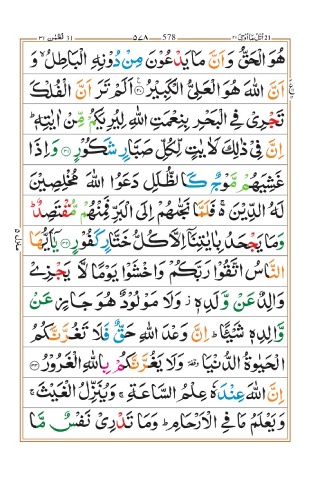 ٥٧٨ 578
هُوَ الْحَقُّ وَاَنَّ مَا يَدْعُوْنَ مِنْ دُوْنِهِ الْبَاطِلُ ۙ وَ
اَنَّ اللّٰهَ هُوَ الْعَلِيُّ الْكَبِيْرُ ﴿٣٠﴾ اَلَمْ تَرَ اَنَّ الْفُلْكَ
تَجْرِيْ فِي الْبَحْرِ بِنِعْمَتِ اللّٰهِ لِيُرِيَكُمْ مِّنْ اٰيٰتِهٖ ؕ
اِنَّ فِيْ ذٰلِكَ لَاٰيٰتٍ لِّكُلِّ صَبَّارٍ شَكُوْرٍ ﴿٣١﴾ وَاِذَا
غَشِيَهُمْ مَّوْجٌ كَالظُّلَلِ دَعَوُا اللّٰهَ مُخْلِصِيْنَ
لَهُ الدِّيْنَ ۚ فَلَمَّا نَجّٰىهُمْ اِلَى الْبَرِّ فَمِنْهُمْ مُّقْتَصِدٌ ؕ
وَمَا يَجْحَدُ بِاٰيٰتِنَاۤ اِلَّا كُلُّ خَتَّارٍ كَفُوْرٍ ﴿٣٢﴾ يٰۤاَيُّهَا
النَّاسُ اتَّقُوْا رَبَّكُمْ وَاخْشَوْا يَوْمًا لَّا يَجْزِيْ
وَالِدٌ عَنْ وَّلَدِهٖ ؗ وَلَا مَوْلُوْدٌ هُوَ جَازٍ عَنْ
وَّالِدِهٖ شَيْـًٔا ؕ اِنَّ وَعْدَ اللّٰهِ حَقٌّ فَلَا تَغُرَّنَّكُمُ
الْحَيٰوةُ الدُّنْيَا ۥ وَلَا يَغُرَّنَّكُمْ بِاللّٰهِ الْغَرُوْرُ ﴿٣٣﴾
اِنَّ اللّٰهَ عِنْدَهٗ عِلْمُ السَّاعَةِ ۚ وَيُنَزِّلُ الْغَيْثَ ۚ
وَيَعْلَمُ مَا فِي الْاَرْحَامِ ؕ وَمَا تَدْرِيْ نَفْسٌ مَّا